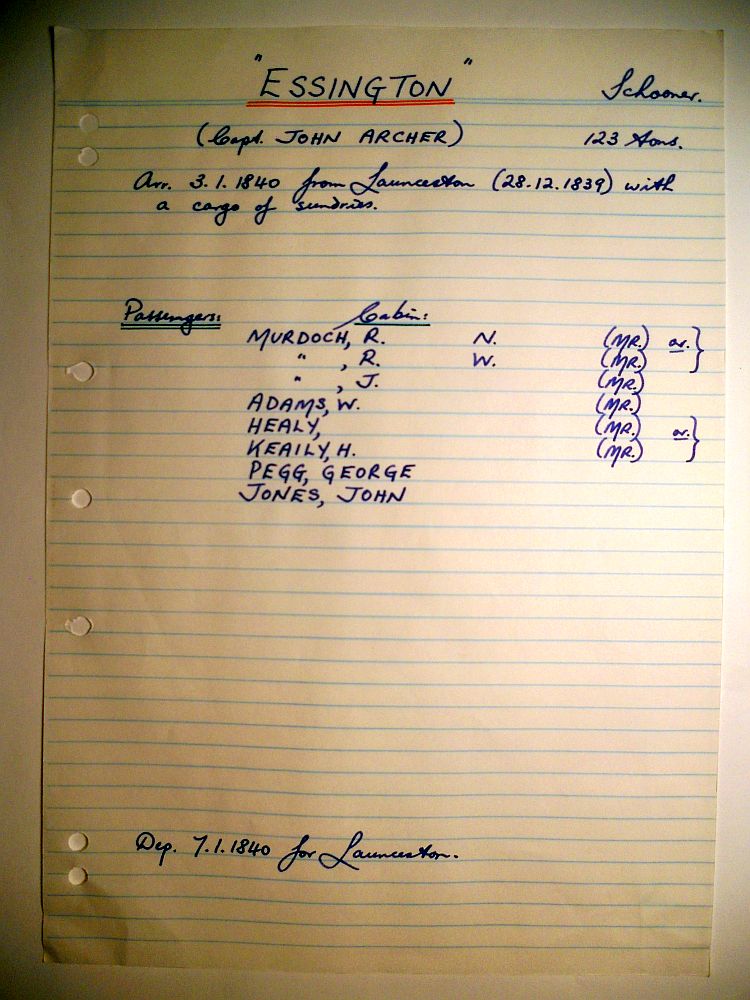 "ESSINGTON" Schooner.
(Capt. JOHN ARCHER) 123 tons.
Arr. 3.1.1840 from Launceston (28.12.1839) with
a cargo of sundries.
Passengers: Cabin:
MURDOCH, R. N. (MR.) or. }
" , R. W. (MR.)
" , J. (MR.)
ADAMS, W. (MR.)
HEALY, (MR.) or. }
KEAILY, H. (MR.)
PEGG, GEORGE
JONES, JOHN
Dep. 7.1.1840 for Launceston.